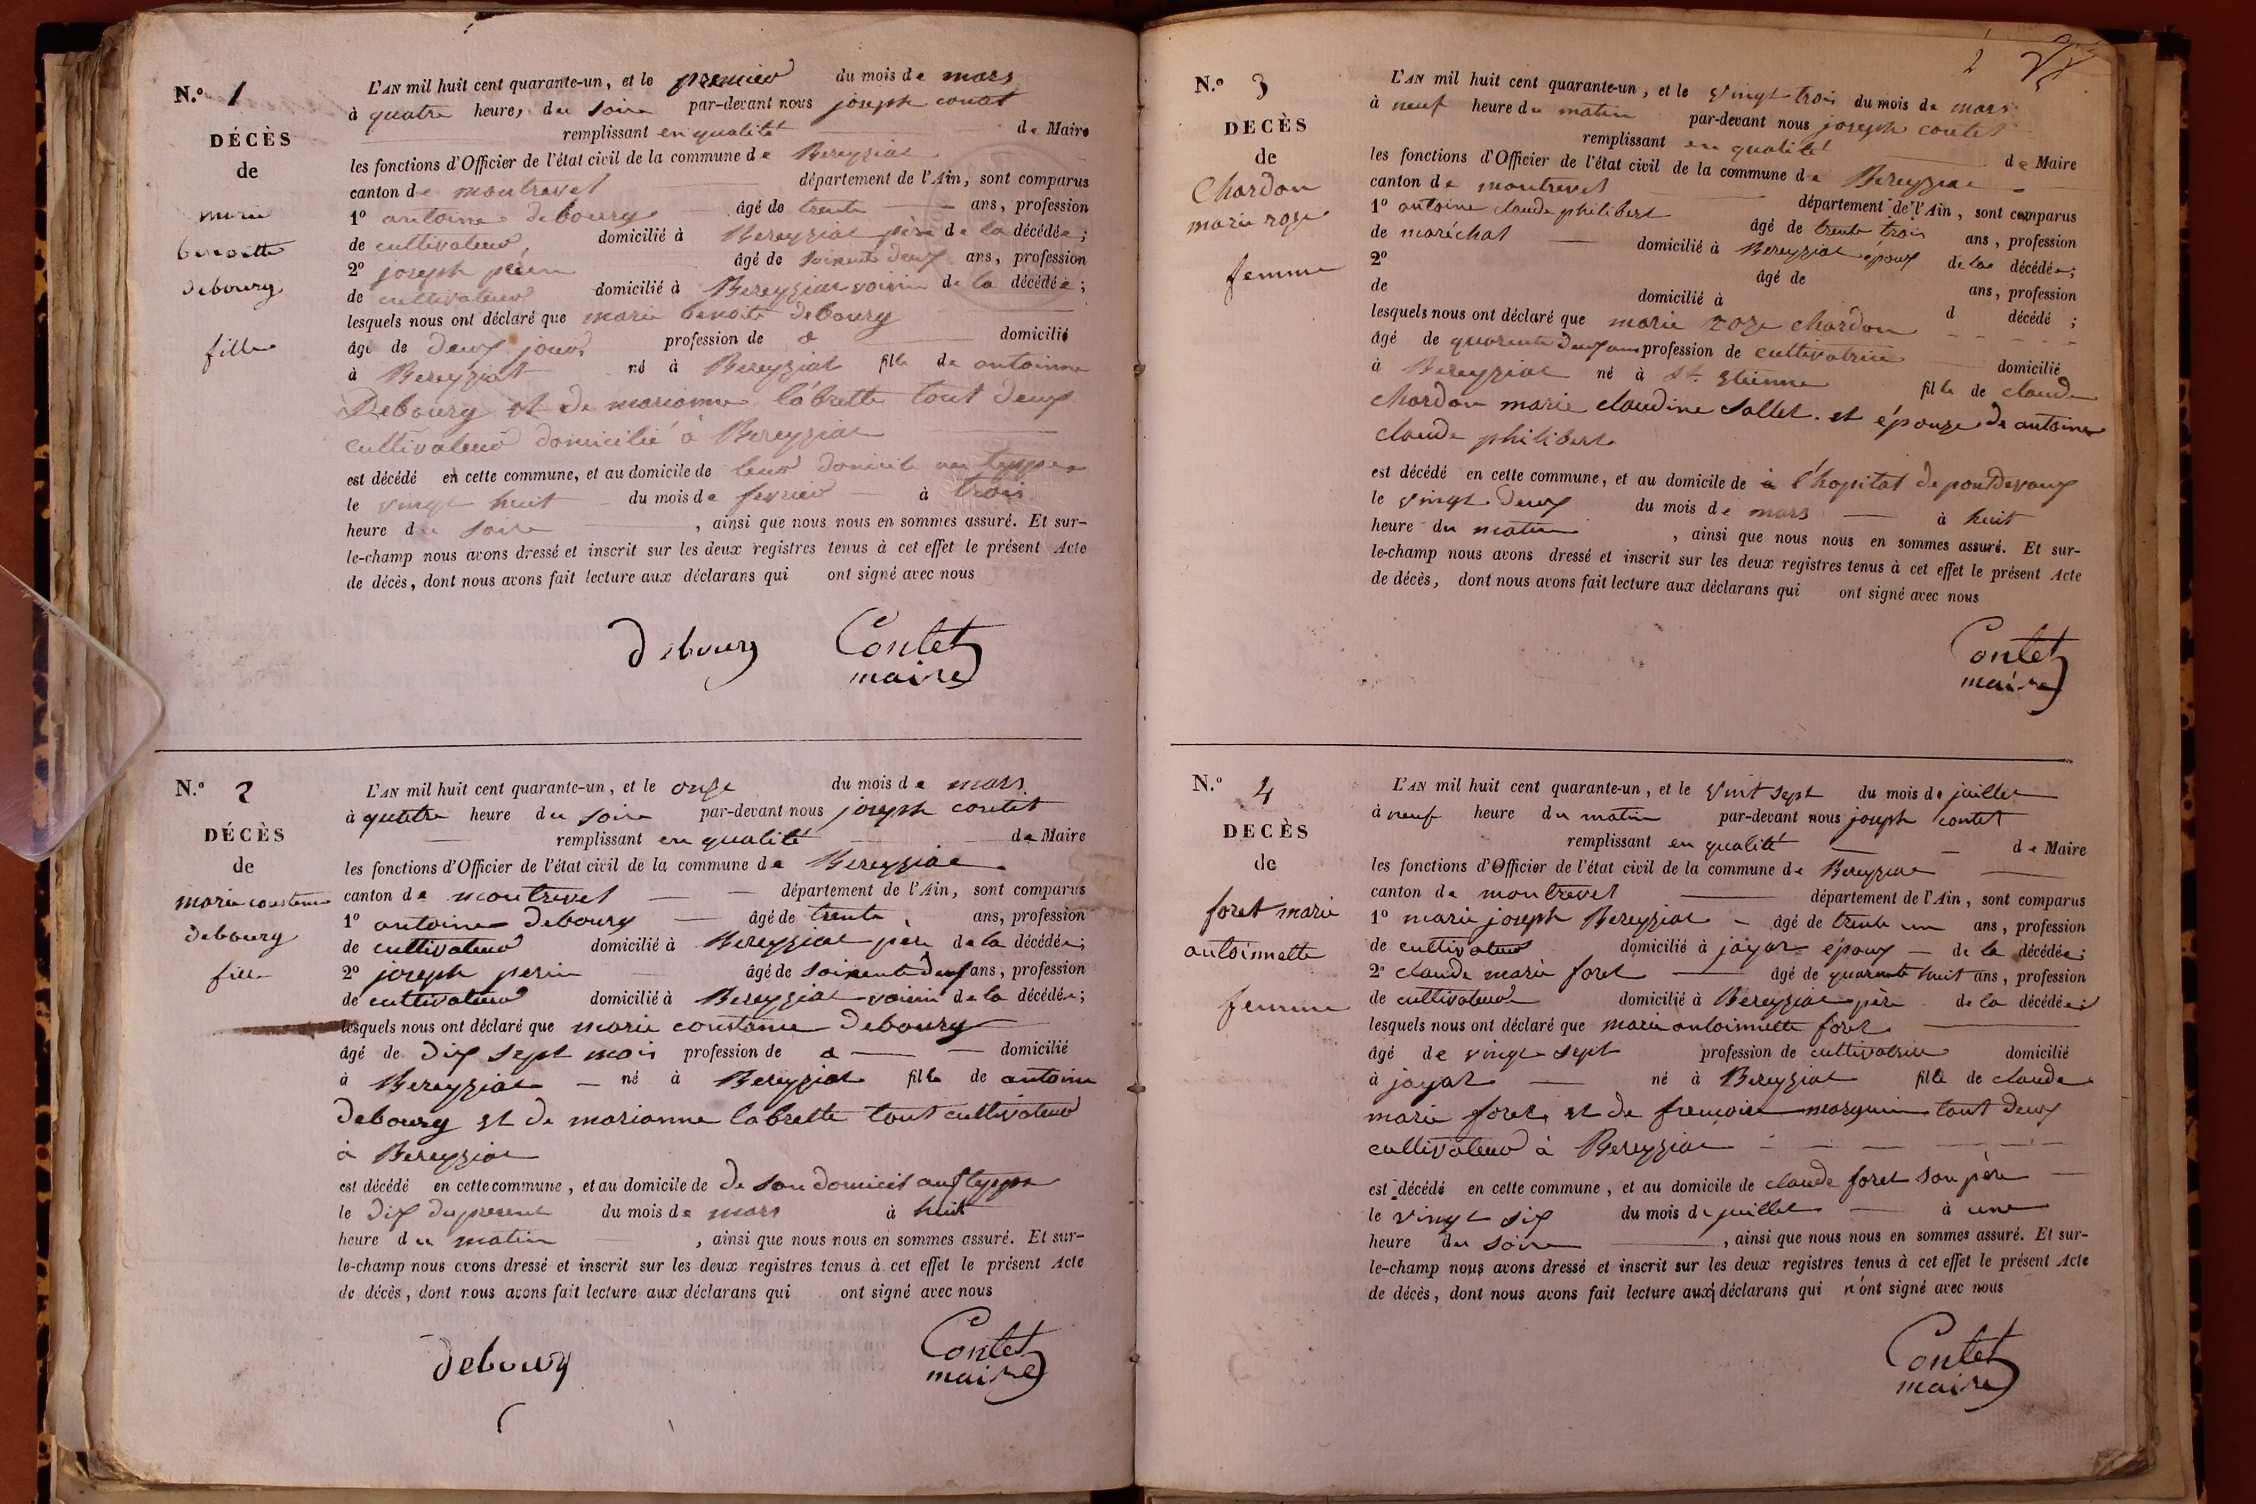 N.° 1
DÉCÈS
de
marie
benoitte
debourg
fille
L'AN mil huit cent quarante-un, et le premier du mois de mars
à quatre heure, du soire par-devant nous joseph contet
remplissant en qualité de Maire
les fonctions d'Officier de l'état civil de la commune de Bereyziat
canton de montrevel département de l'Ain, sont comparus
1° antoine debourg âgé de trente ans, profession
de cultivateur, domicilié à Bereyziat père de la décédée;
2° joseph perin âgé de soixente deux ans, profession
de cultivateur domicilié à Bereyziat voisin de la décédée;
lesquels nous ont déclaré que marie benoite debourg
âgé de deux jours profession de domicilié
à Bereyziat né à Bereyziat fille de antoinne
Debourg et de marianne labrette tout deux
cultivateur domicilié à Bereyziat
est décédé en cette commune, et au domicile de leur domicile
le vingt huit du mois de fevrier à trois
heure du soire , ainsi que nous nous en sommes assuré. Et sur-
le-champ nous avons dressé et inscrit sur les deux registres tenus à cet effet le présent Acte
de décès, dont nous avons fait lecture aux déclarans qui ont signé avec nous
debourg Contet
maire
N.° 2
DÉCÈS
de
marie constanse
debourg
fille
L'AN mil huit cent quarante-un, et le onze du mois de mars
à quatre heure du soire par-devant nous joseph contet
remplissant en qualité de Maire
les fonctions d'Officier de l'état civil de la commune de Bereyziat
canton de montrevel département de l'Ain, sont comparus
1° antoine debourg âgé de trente ans, profession
de cultivateur domicilié à Bereyziat père de la décédée;
2° joseph perin âgé de soixente deux ans, profession
de cultivateur domicilié à Bereyziat voisin de la décédée;
lesquels nous ont déclaré que marie constanse debourg
âgé de dix sept mois profession de domicilié
à Bereyziat né à Bereyziat fille de antoine
debourg et de marianne labrette tout cultivateur
à Bereyziat
est décédé en cette commune, et au domicile de de son domicil
le dix du present du mois de mars à huit
heure du matin , ainsi que nous nous en sommes assuré. Et sur-
le-champ nous avons dressé et inscrit sur les deux registres tenus à cet effet le présent Acte
de décès, dont nous avons fait lecture aux déclarans qui ont signé avec nous
debourg Contet
maire
2
N.° 3
DECÈS
de
Chardon
marie roze
femme
L'AN mil huit cent quarante-un, et le vingt trois du mois de mars
à neuf heure du matin par-devant nous joseph contet
remplissant en qualité de Maire
les fonctions d'Officier de l'état civil de la commune de Bereyziat
canton de montrevel département de l'Ain, sont comparus
1° antoine claude philibert âgé de trente trois ans, profession
de maréchal domicilié à Bereyziat époux de la décédée;
2° âgé de ans, profession
de domicilié à d décédé ;
lesquels nous ont déclaré que marie roze chardon
âgé de quarente deux ans profession de cultivatrice domicilié
à Bereyziat né à St. Etienne fille de claude
chardon marie claudine Sallet. et épouze de antoine
claude philibert
est décédé en cette commune, et au domicile de à l'hopital de pontdevaux
le vingt deux du mois de mars à huit
heure du matin , ainsi que nous nous en sommes assuré. Et sur-
le-champ nous avons dressé et inscrit sur les deux registres tenus à cet effet le présent Acte
de décès, dont nous avons fait lecture aux déclarans qui ont signé avec nous
Contet
maire
N.° 4
DECÈS
de
foret marie
antoinnette
femme
L'AN mil huit cent quarante-un, et le vint sept du mois de juillet
à neuf heure du matin par-devant nous joseph contet
remplissant en qualité de Maire
les fonctions d'Officier de l'état civil de la commune de Bereyziat
canton de montrevel département de l'Ain, sont comparus
1° marie joseph Bereyziat âgé de trente un ans, profession
de cultivateur domicilié à jayat époux de la décédée;
2° claude marie foret âgé de quarente huit ans, profession
de cultivateur domicilié à Bereyziat père de la décédée;
lesquels nous ont déclaré que marie antoinnette foret
âgé de vingt sept profession de cultivatrice domicilié
à jayat né à Bereyziat fille de claude
marie foret et de morguin tout deux
cultivateur à Bereyziat
est décédé en cette commune, et au domicile de claude foret son père
le vingt six du mois de juillet à une
heure du soire , ainsi que nous nous en sommes assuré. Et sur-
le-champ nous avons dressé et inscrit sur les deux registres tenus à cet effet le présent Acte
de décès, dont nous avons fait lecture aux déclarans qui n'ont signé avec nous
Contet
maire